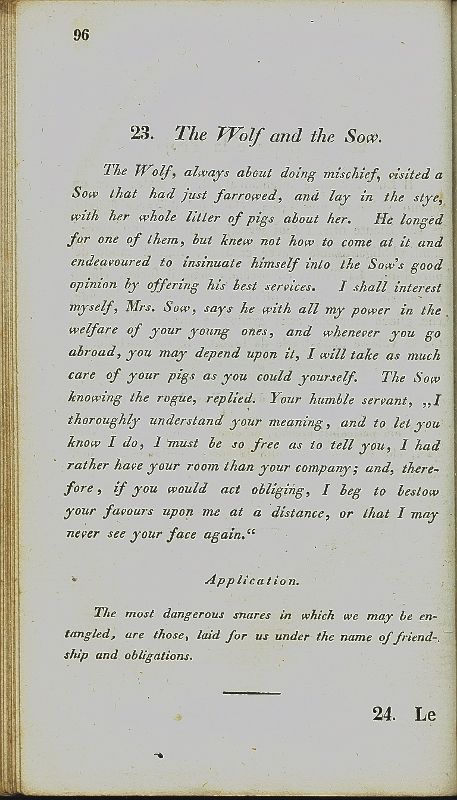 96
23. The Wolf and the Sow.
The Wolf, always about doing mischief, visited a
Sow that had just farrowed, and lay in the stye,
with her whole litter of pigs about her. He longed
for one of them, but knew not how to come at it and
endeavoured to insinuate himself into the Sow's good
opinion by offering his best services. I shall interest
myself, Mrs. Sow, says he with all my power in the
welfare of your young ones, and whenever you go
abroad, you may depend upon it, I will take as much
care of your pigs as you could yourself. The Sow
knowing the rogue, replied. Your humble servant, „I
thoroughly understand your meaning, and to let you
know I do, I must be so free as to tell you, I had
rather have your room than your company; and, there-
fore, if you would act obliging, I beg to bestow
your favours upon me at a distance, or that I may
never see your face again.“
Application.
The most dangerous snares in which we may be en-
tangled, are those, laid for us under the name of friend-
ship and obligations.
24. Le